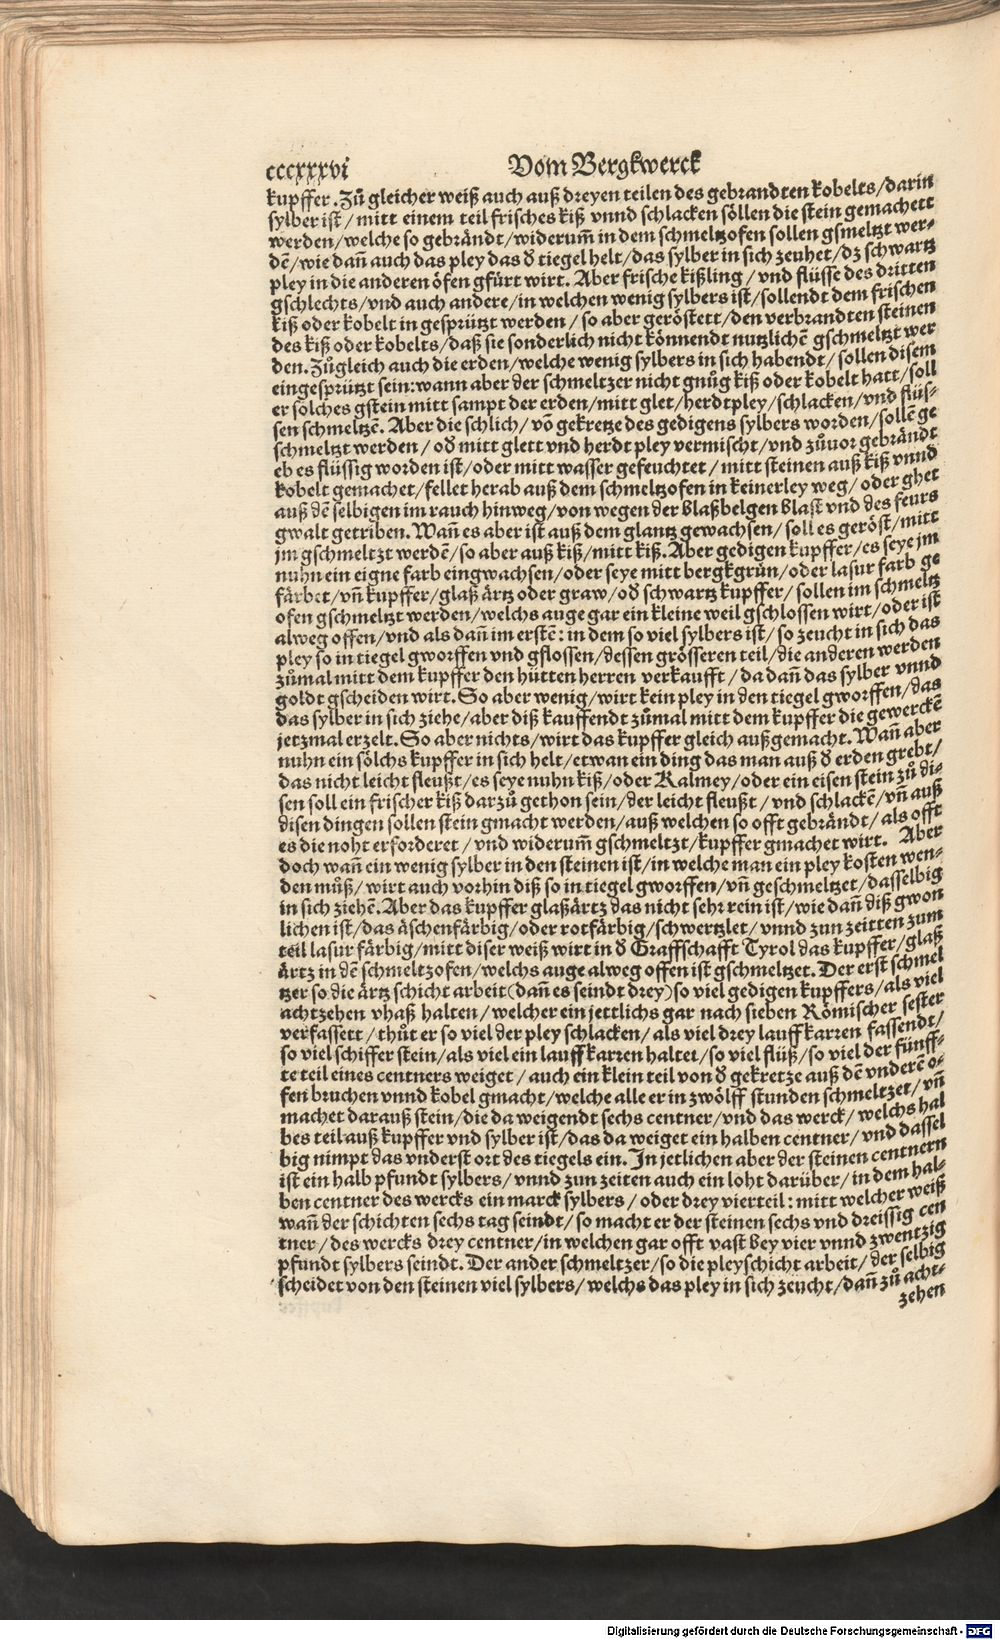 cccxxxvi Vom Bergkwerck
kupffer. Zů gleicher weiß auch auß dreyen teilen des gebrandten kobelts/darin
sylber ist/ mitt einem teil frisches kiß vnnd schlacken söllen die stein gemachett
werden/welche so gebrändt/widerum̃ in dem schmeltzofen sollen gsmeltzt wer-
dē/wie dañ auch das pley das ð tiegel helt/das sylber in sich zeuhet/dz schwartz
pley in die anderen öfen gfürt wirt. Aber frische kißling/ vnd flüsse des dritten
gschlechts/vnd auch andere/in welchen wenig sylbers ist/sollendt dem frischen
kiß oder kobelt in gesprützt werden/ so aber geröstett/den verbrandten steinen
des kiß oder kobelts/daß sie sonderlich nicht könnendt nutzlichē gschmeltzt wer
den. Zůgleich auch die erden/welche wenig sylbers in sich habendt/ sollen disem
eingesprützt sein: wann aber der schmeltzer nicht gnůg kiß oder kobelt hatt/soll
er solches gstein mitt sampt der erden/mitt glet/herdtpley/schlacken/vnd flüs-
sen schmeltzē. Aber die schlich/ vō gekretze des gedigens sylbers worden/sollē ge
schmeltzt werden/ oð mitt glett vnd herdt pley vermischt/vnd zůuor gebrändt
eb es flüssig worden ist/oder mitt wasser gefeuchtet/ mitt steinen auß kiß vnnd
kobelt gemachet/fellet herab auß dem schmeltzofen in keinerley weg/ oder ghet
auß dē selbigen im rauch hinweg/von wegen der blaßbelgen blast vnd des feurs
gwalt getriben. Wañ es aber ist auß dem glantz gewachsen/ soll es geröst/mitt
jm gschmeltzt werdē/so aber auß kiß/mitt kiß. Aber gedigen kupffer/es seye jm
nuhn ein eigne farb eingwachsen/oder seye mitt bergkgrün/oder lasur farb ge
färbet/ vñ kupffer/glaß ärtz oder graw/oð schwartz kupffer/ sollen im schmeltz
ofen gschmeltzt werden/welchs auge gar ein kleine weil gschlossen wirt/oder ist
alweg offen/vnd als dañ im erstē: in dem so viel sylbers ist/ so zeucht in sich das
pley so in tiegel gworffen vnd gflossen/dessen grösseren teil/die anderen werden
zůmal mitt dem kupffer den hütten herren verkaufft/ da dañ das sylber vnnd
goldt gscheiden wirt. So aber wenig/wirt kein pley in den tiegel gworffen/das
das sylber in sich ziehe/aber diß kauffendt zůmal mitt dem kupffer die gewerckē
jetzmal erzelt. So aber nichts/wirt das kupffer gleich außgemacht. Wañ aber
nuhn ein sölchs kupffer in sich helt/etwan ein ding das man auß ð erden grebt/
das nicht leicht fleußt/es seye nuhn kiß/oder Kalmey/oder ein eisen stein zů di-
sen soll ein frischer kiß darzů gethon sein/der leicht fleußt/ vnd schlackē/vñ auß
disen dingen sollen stein gmacht werden/auß welchen so offt gebrändt/ als offt
es die noht erforderet/ vnd widerum̃ gschmeltzt/kupffer gmachet wirt. Aber
doch wañ ein wenig sylber in den steinen ist/in welche man ein pley kosten wen-
den můß/ wirt auch vorhin diß so in tiegel gworffen/vñ geschmeltzet/dasselbig
in sich ziehē. Aber das kupffer glaßärtz das nicht sehr rein ist/wie dañ diß gwon
lichen ist/das äschenfärbig/oder rotfärbig/schwertzlet/vnnd zun zeitten zum
teil lasur färbig/mitt diser weiß wirt in ð Graffschafft Tyrol das kupffer/glaß
ärtz in dē schmeltzofen/welchs auge alweg offen ist gschmeltzet. Der erst schmel
tzer so die ärtz schicht arbeit(dañ es seindt drey)so viel gedigen kupffers/als viel
achtzehen vhaß halten/ welcher ein jettlichs gar nach sieben Römischer sester
verfassett/ thůt er so viel der pley schlacken/ als viel drey lauffkarren fassendt/
so viel schiffer stein/als viel ein lauffkarren haltet/so viel flüß/so viel der fünff-
te teil eines centners weiget/ auch ein klein teil von ð gekretze auß dē vnderē o-
fen bruchen vnnd kobel gmacht/welche alle er in zwölff stunden schmeltzet/vñ
machet darauß stein/die da weigendt sechs centner/vnd das werck/ welchs hal
bes teil auß kupffer vnd sylber ist/das da weiget ein halben centner/ vnd dassel
big nimpt das vnderst ort des tiegels ein. In jetlichen aber der steinen centnern
ist ein halb pfundt sylbers/ vnnd zun zeiten auch ein loht darüber/in dem hal-
ben centner des wercks ein marck sylbers/ oder drey vierteil: mitt welcher weiß
wañ der schichten sechs tag seindt/ so macht er der steinen sechs vnd dreissig cen
tner/ des wercks drey centner/in welchen gar offt vast bey vier vnnd zwentzig
pfundt sylbers seindt. Der ander schmeltzer/so die pleyschicht arbeit/ der selbig
scheidet von den steinen viel sylbers/ welchs das pley in sich zeucht/dañ zů acht-
zehen
Digitalisierung gefördert durch die Deutsche Forschungsgemeinschaft - DFG